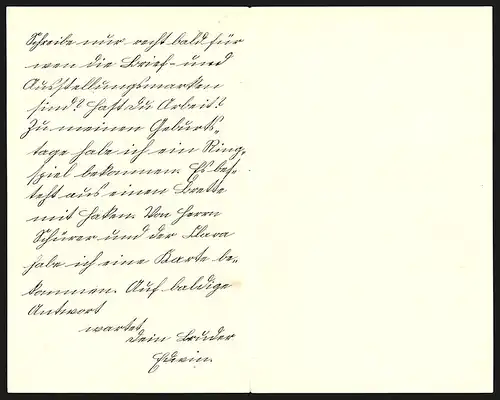 Schreibe nur recht bald für
wen die Brief- und
Ausstellungsmarken
sind? Hast du Arbeit?
Zu meinen Geburts-
tage habe ich ein Ring-
spiel bekommen. Es bes-
teht aus einen Brette
mit Haken. Von Herrn
Schürer und der Clara
habe ich eine Karte be-
kommen. Auf baldige
Antwort
wartet
dein Bruder
Edwin.